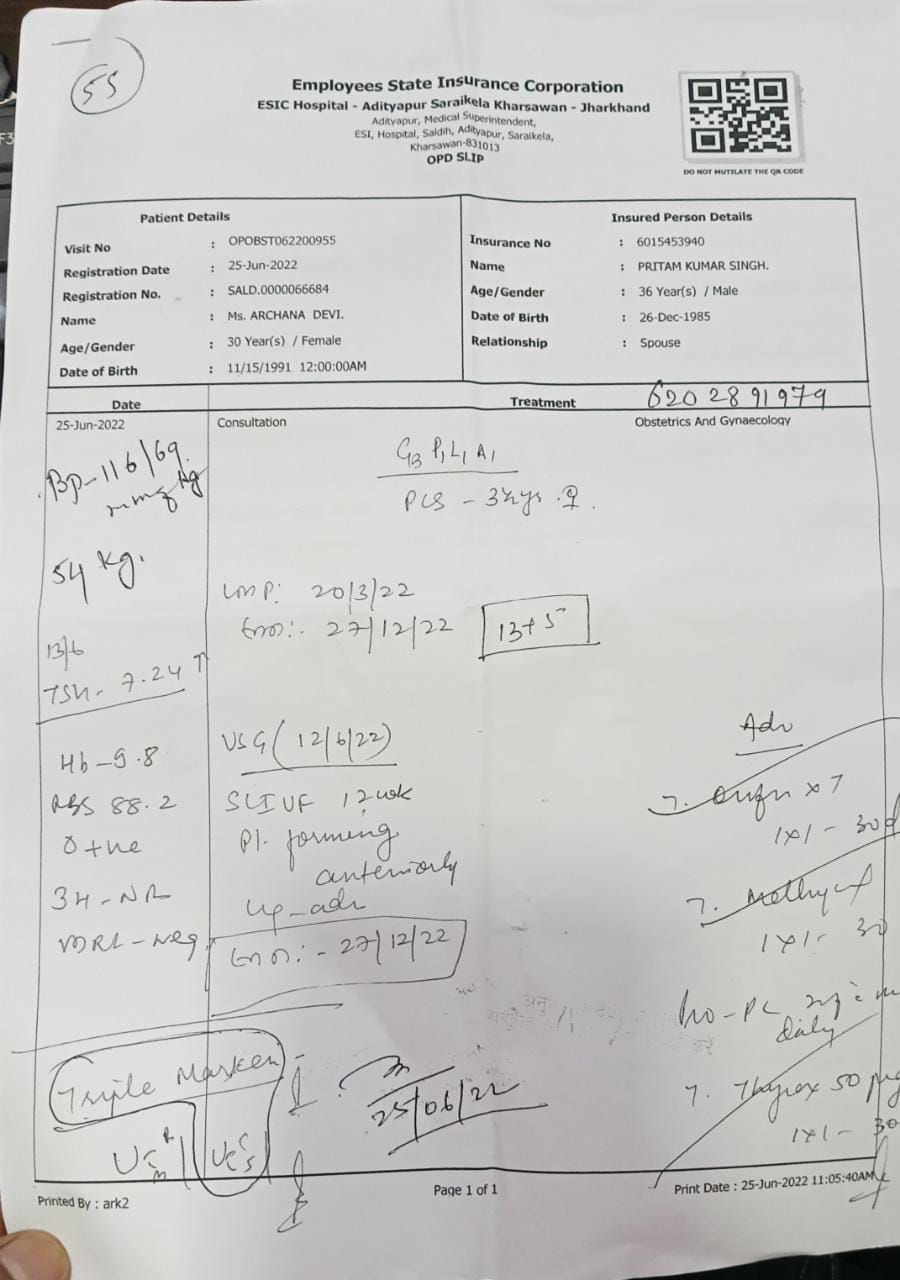 55
Employees State Insurance Corporation
ESIC Hospital - Adityapur Saraikela Kharsawan - Jharkhand
Adityapur, Medical Superintendent,
ESI, Hospital, Saldih, Adityapur, Saraikela,
Kharsawan-831013
OPD SLIP
DO NOT MUTILATE THE QR CODE
Patient Details
Visit No : OPOBST062200955
Registration Date : 25-Jun-2022
Registration No. : SALD.0000066684
Name : Ms. ARCHANA DEVI.
Age/Gender : 30 Year(s) / Female
Date of Birth : 11/15/1991 12:00:00AM
Insured Person Details
Insurance No : 6015453940
Name : PRITAM KUMAR SINGH.
Age/Gender : 36 Year(s) / Male
Date of Birth : 26-Dec-1985
Relationship : Spouse
Date Treatment 6202891979
25-Jun-2022 Consultation Obstetrics And Gynaecology
BP-116/69
mmg Hg
54 kg.
13/6
TSH- 7.24 ↑
Hb-9.8
RBS 88.2
O +ve
3H-NR
VDRL-Neg
G3 P1 L1 A1
PCS - 3½yrs ♀.
LMP: 20/3/22
EDD:- 27/12/22 13+5
USG (12/6/22)
SLIUF 12wk
Pl. forming
anteriorly
EDD:- 27/12/22
Adv
1x1- 30d
T. Methycf
1x1- 30
daily
T. Thyrox 50 µg
1x1- 30
Triple Marker
25/06/22
Printed By : ark2
Page 1 of 1
Print Date : 25-Jun-2022 11:05:40AM